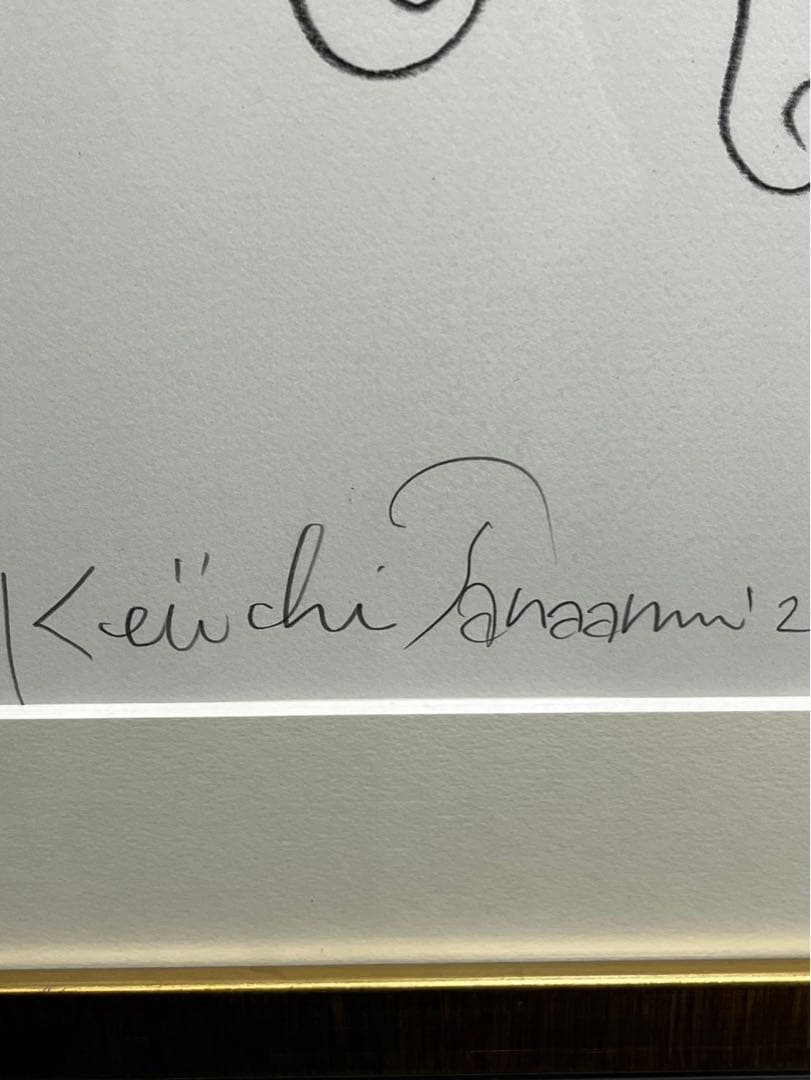 Keiichi Tanaami '2